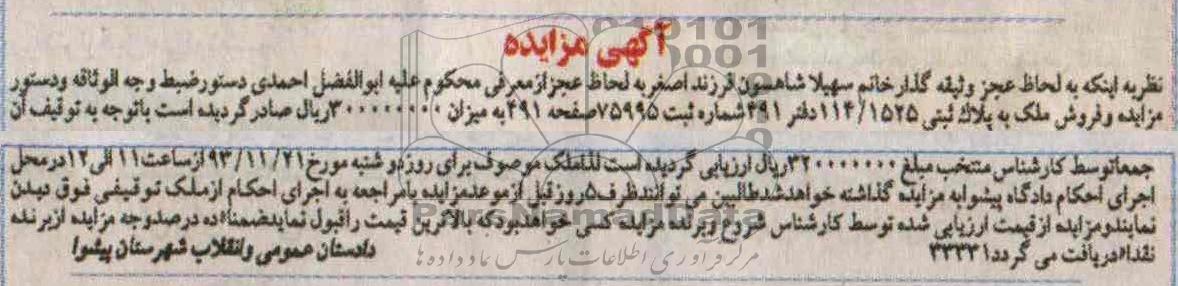 آگهی مزایده
نظربه اینکه به لحاظ عجز وثیقه گذارخانم سهیلا شاهسون فرزند اصغربه لحاظ عجزازمعرفی محکوم علیه ابوالفضل احمدی دستورضبط وجه الوثاقه ودستور
مزایده وفروش ملک به پلاک ثبتی ۱۱۴/۱۵۲۵دفتر ۴۹۱شماره ثبت ۷۵۹۹۵صفحه ۴۹۱به میزان ۳۰۰۰۰۰۰۰۰ریال صادرگردیده است باتوجه به توقیف آن
جمعاتوسط کارشناس منتخب مبلغ ۳۲۰۰۰۰۰۰۰۰ریال ارزیابی گردیده است لذاملک موصوف برای روزدوشنبه مورخ۹۳/۱۱/۲۱ازساعت۱۱الی۱۲درمحل
اجرای احکام دادگاه پیشوابه مزایده گذاشته خواهدشدطالبین می توانندظرف۵روزقبل ازموعدمزایده بامراجعه به اجرای احکام ازملک توقیفی فوق دیدن
نمایندومزایده ازقیمت ارزیابی شده توسط کارشناس شروع وبرنده مزایده کسی خواهدبودکه بالاترین قیمت راقبول نمایدضمنا«ده درصدوجه مزایده ازبرنده
نقدا«دریافت می گردد۳۳۳۳۱
دادستان عمومی وانقلاب شهرستان پیشوا
ParsNamadData
مرکز فرآوری اطلاعات پارس نماد داده ها